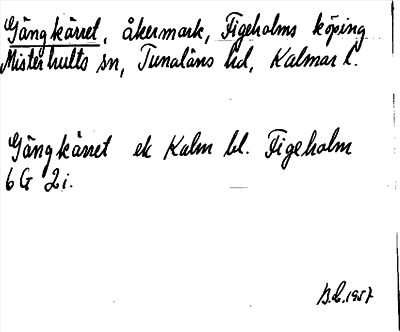 Gångkärret, åkermark, Figeholms köping
Misterhults sn, Tunaläns hd, Kalmar l.
Gångkärret ek Kalm bl. Figeholm
6 G 2 i.
1957